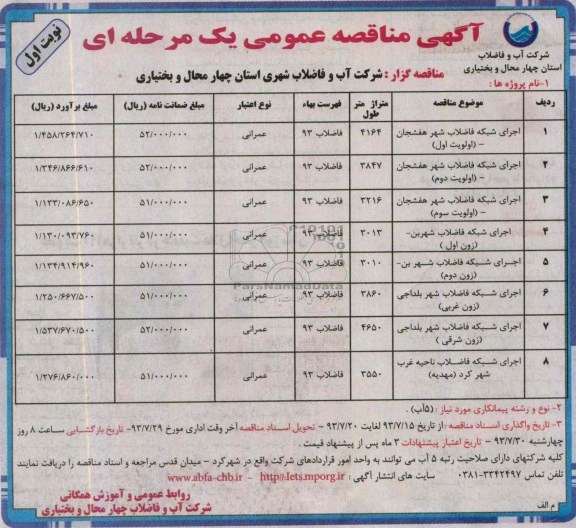 نوبت اول
آگهی مناقصه عمومی یک مرحله ای
شرکت آب و فاضلاب
استان چهار محال و بختیاری
مناقصه گزار : شرکت آب و فاضلاب شهری استان چهار محال و بختیاری
۱-نام پروژه ها :
ردیف موضوع مناقصه متراژ متر طول فهرست بهاء نوع اعتبار مبلغ ضمانت نامه (ریال) مبلغ برآورد (ریال)
۱ اجرای شبکه فاضلاب شهر هفشجان – (اولویت اول) ۴۱۶۴ فاضلاب ۹۳ عمرانی ۵۲/۰۰۰/۰۰۰ ۱/۴۵۸/۲۶۴/۷۱۰
۲ اجرای شبکه فاضلاب شهر هفشجان – (اولویت دوم) ۳۸۴۷ فاضلاب ۹۳ عمرانی ۵۲/۰۰۰/۰۰۰ ۱/۳۴۶/۸۶۶/۶۱۰
۳ اجرای شبکه فاضلاب شهر هفشجان – (اولویت سوم) ۳۲۱۶ فاضلاب ۹۳ عمرانی ۵۱/۰۰۰/۰۰۰ ۱/۱۳۳/۰۸۶/۶۵۰
۴ اجرای شبکه فاضلاب شهربن- (زون اول ) ۳۰۱۳ فاضلاب ۹۳ عمرانی ۵۱/۰۰۰/۰۰۰ ۱/۱۳۰/۰۹۳/۷۶۰
۵ اجرای شبکه فاضلاب شهر بن- (زون دوم) ۳۰۱۰ فاضلاب ۹۳ عمرانی ۵۱/۰۰۰/۰۰۰ ۱/۱۳۴/۹۱۴/۹۶۰
۶ اجرای شبکه فاضلاب شهر بلداجی (زون غربی) ۳۸۶۰ فاضلاب ۹۳ عمرانی ۵۱/۰۰۰/۰۰۰ ۱/۲۵۰/۶۶۷/۵۰۰
۷ اجرای شبکه فاضلاب شهر بلداجی (زون شرقی ) ۴۶۵۰ فاضلاب ۹۳ عمرانی ۵۲/۰۰۰/۰۰۰ ۱/۵۳۷/۶۷۰/۵۰۰
۸ اجرای شبکه فاضلاب ناحیه غرب شهر کرد (مهدیه) ۳۵۵۰ فاضلاب ۹۳ عمرانی ۵۱/۰۰۰/۰۰۰ ۱/۲۷۶/۸۶۰/۰۰۰
ParsNamadData
۲- نوع و رشته پیمانکاری مورد نیاز : (۵آب).
۳- تاریخ واگذاری اسناد مناقصه :از تاریخ ۹۳/۷/۱۵ لغایت ۹۳/۷/۲۰ – تحویل اسناد مناقصه آخر وقت اداری مورخ ۹۳/۷/۲۹- تاریخ بازگشایی ساعت ۸ روز
چهارشنبه ۹۳/۷/۳۰ – تاریخ اعتبار پیشنهادات ۳ ماه پس از پیشنهاد قیمت .
کلیه شرکتهای دارای صلاحیت رتبه ۵ آب می توانند به واحد امور قراردادهای شرکت واقع در شهرکرد – میدان قدس مراجعه و اسناد مناقصه را دریافت نمایند
تلفن تماس ۳۳۴۲۴۹۷-۰۳۸۱ سایت های انتشار آگهی : http://iets.mporg.ir - www.abfa-chb.ir
روابط عمومی و آموزش همگانی
شرکت آب و فاضلاب چهار محال و بختیاری
م الف